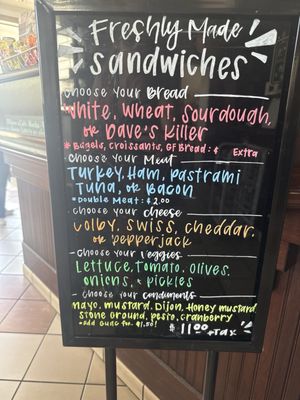 Freshly Made
Sandwiches
Choose Your Bread
White, Wheat, Sourdough,
or Dave's Killer
* Bagels, Croissants, GF Bread: $ Extra
Choose Your Meat
Turkey, Ham, Pastrami
Tuna, or Bacon
* Double Meat: $2.00
Choose your cheese
Colby, Swiss, Cheddar,
or Pepperjack
Choose your Veggies
Lettuce, Tomato, Olives,
Onions, & Pickles
Choose your Condiments
Mayo, Mustard, Dijon, Honey Mustard
Stone Ground, Pesto, Cranberry
*Add Guac for $1.50!
$11.00 +Tax